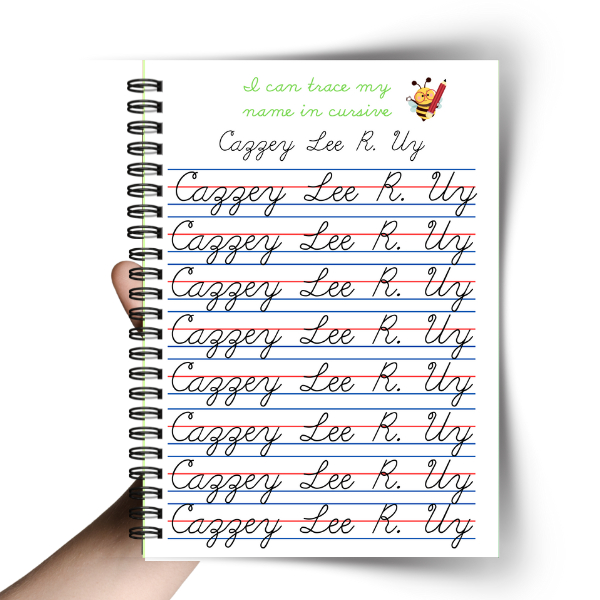 I can trace my
name in cursive
Cazzey Lee R. Uy
Cazzey Lee R. Uy
Cazzey Lee R. Uy
Cazzey Lee R. Uy
Cazzey Lee R. Uy
Cazzey Lee R. Uy
Cazzey Lee R. Uy
Cazzey Lee R. Uy
Cazzey Lee R. Uy